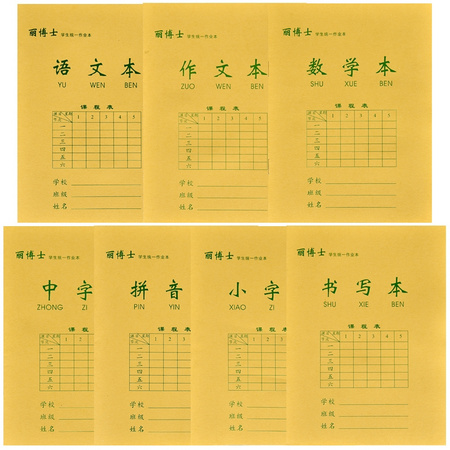 丽博士 学生统一作业本
语文本
YU WEN BEN
课程表
1 2 3 4 5
一
二
三
四
五
六
学校
班级
姓名
丽博士 学生统一作业本
作文本
ZUO WEN BEN
课程表
1 2 3 4 5
一
二
三
四
五
六
学校
班级
姓名
丽博士 学生统一作业本
数学本
SHU XUE BEN
课程表
1 2 3 4 5
一
二
三
四
五
六
学校
班级
姓名
丽博士 学生统一作业本
中字
ZHONG ZI
课程
1 2 3
一
二
三
四
五
六
学校
班级
姓名
丽博士 学生统一作业本
拼音
PIN YIN
课程
1 2 3
一
二
三
四
五
六
学校
班级
姓名
丽博士 学生统一作业本
小字
XIAO ZI
课程
1 2 3
一
二
三
四
五
六
学校
班级
姓名
丽博士 学生统一作业本
书写本
SHU XIE BEN
课程表
1 2 3 4 5
一
二
三
四
五
六
学校
班级
姓名